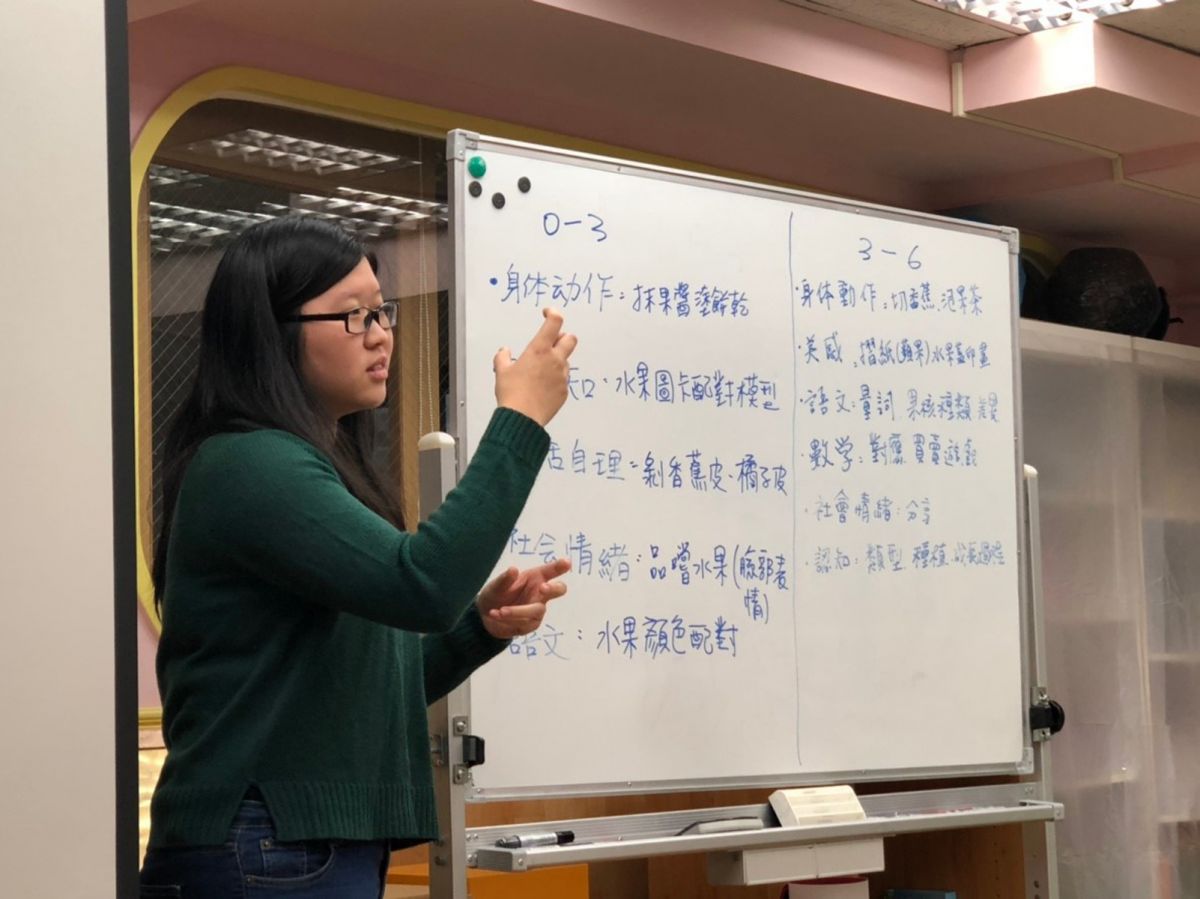 0-3
·身体动作:抹果醬塗餅乾
知:水果圖卡配對模型
活自理:剝香蕉皮、橘子皮
社会情緒:品嚐水果(臉部表
情)
語文:水果顏色配對
3-6
·身体動作:切香蕉、泡果茶
·美感:摺紙(蘋果)水果蓋印畫
·語文:量詞、果核種類
·數学:對應、買賣遊戲
·社會情緒:分享
·認知:類型、種植、成長過程